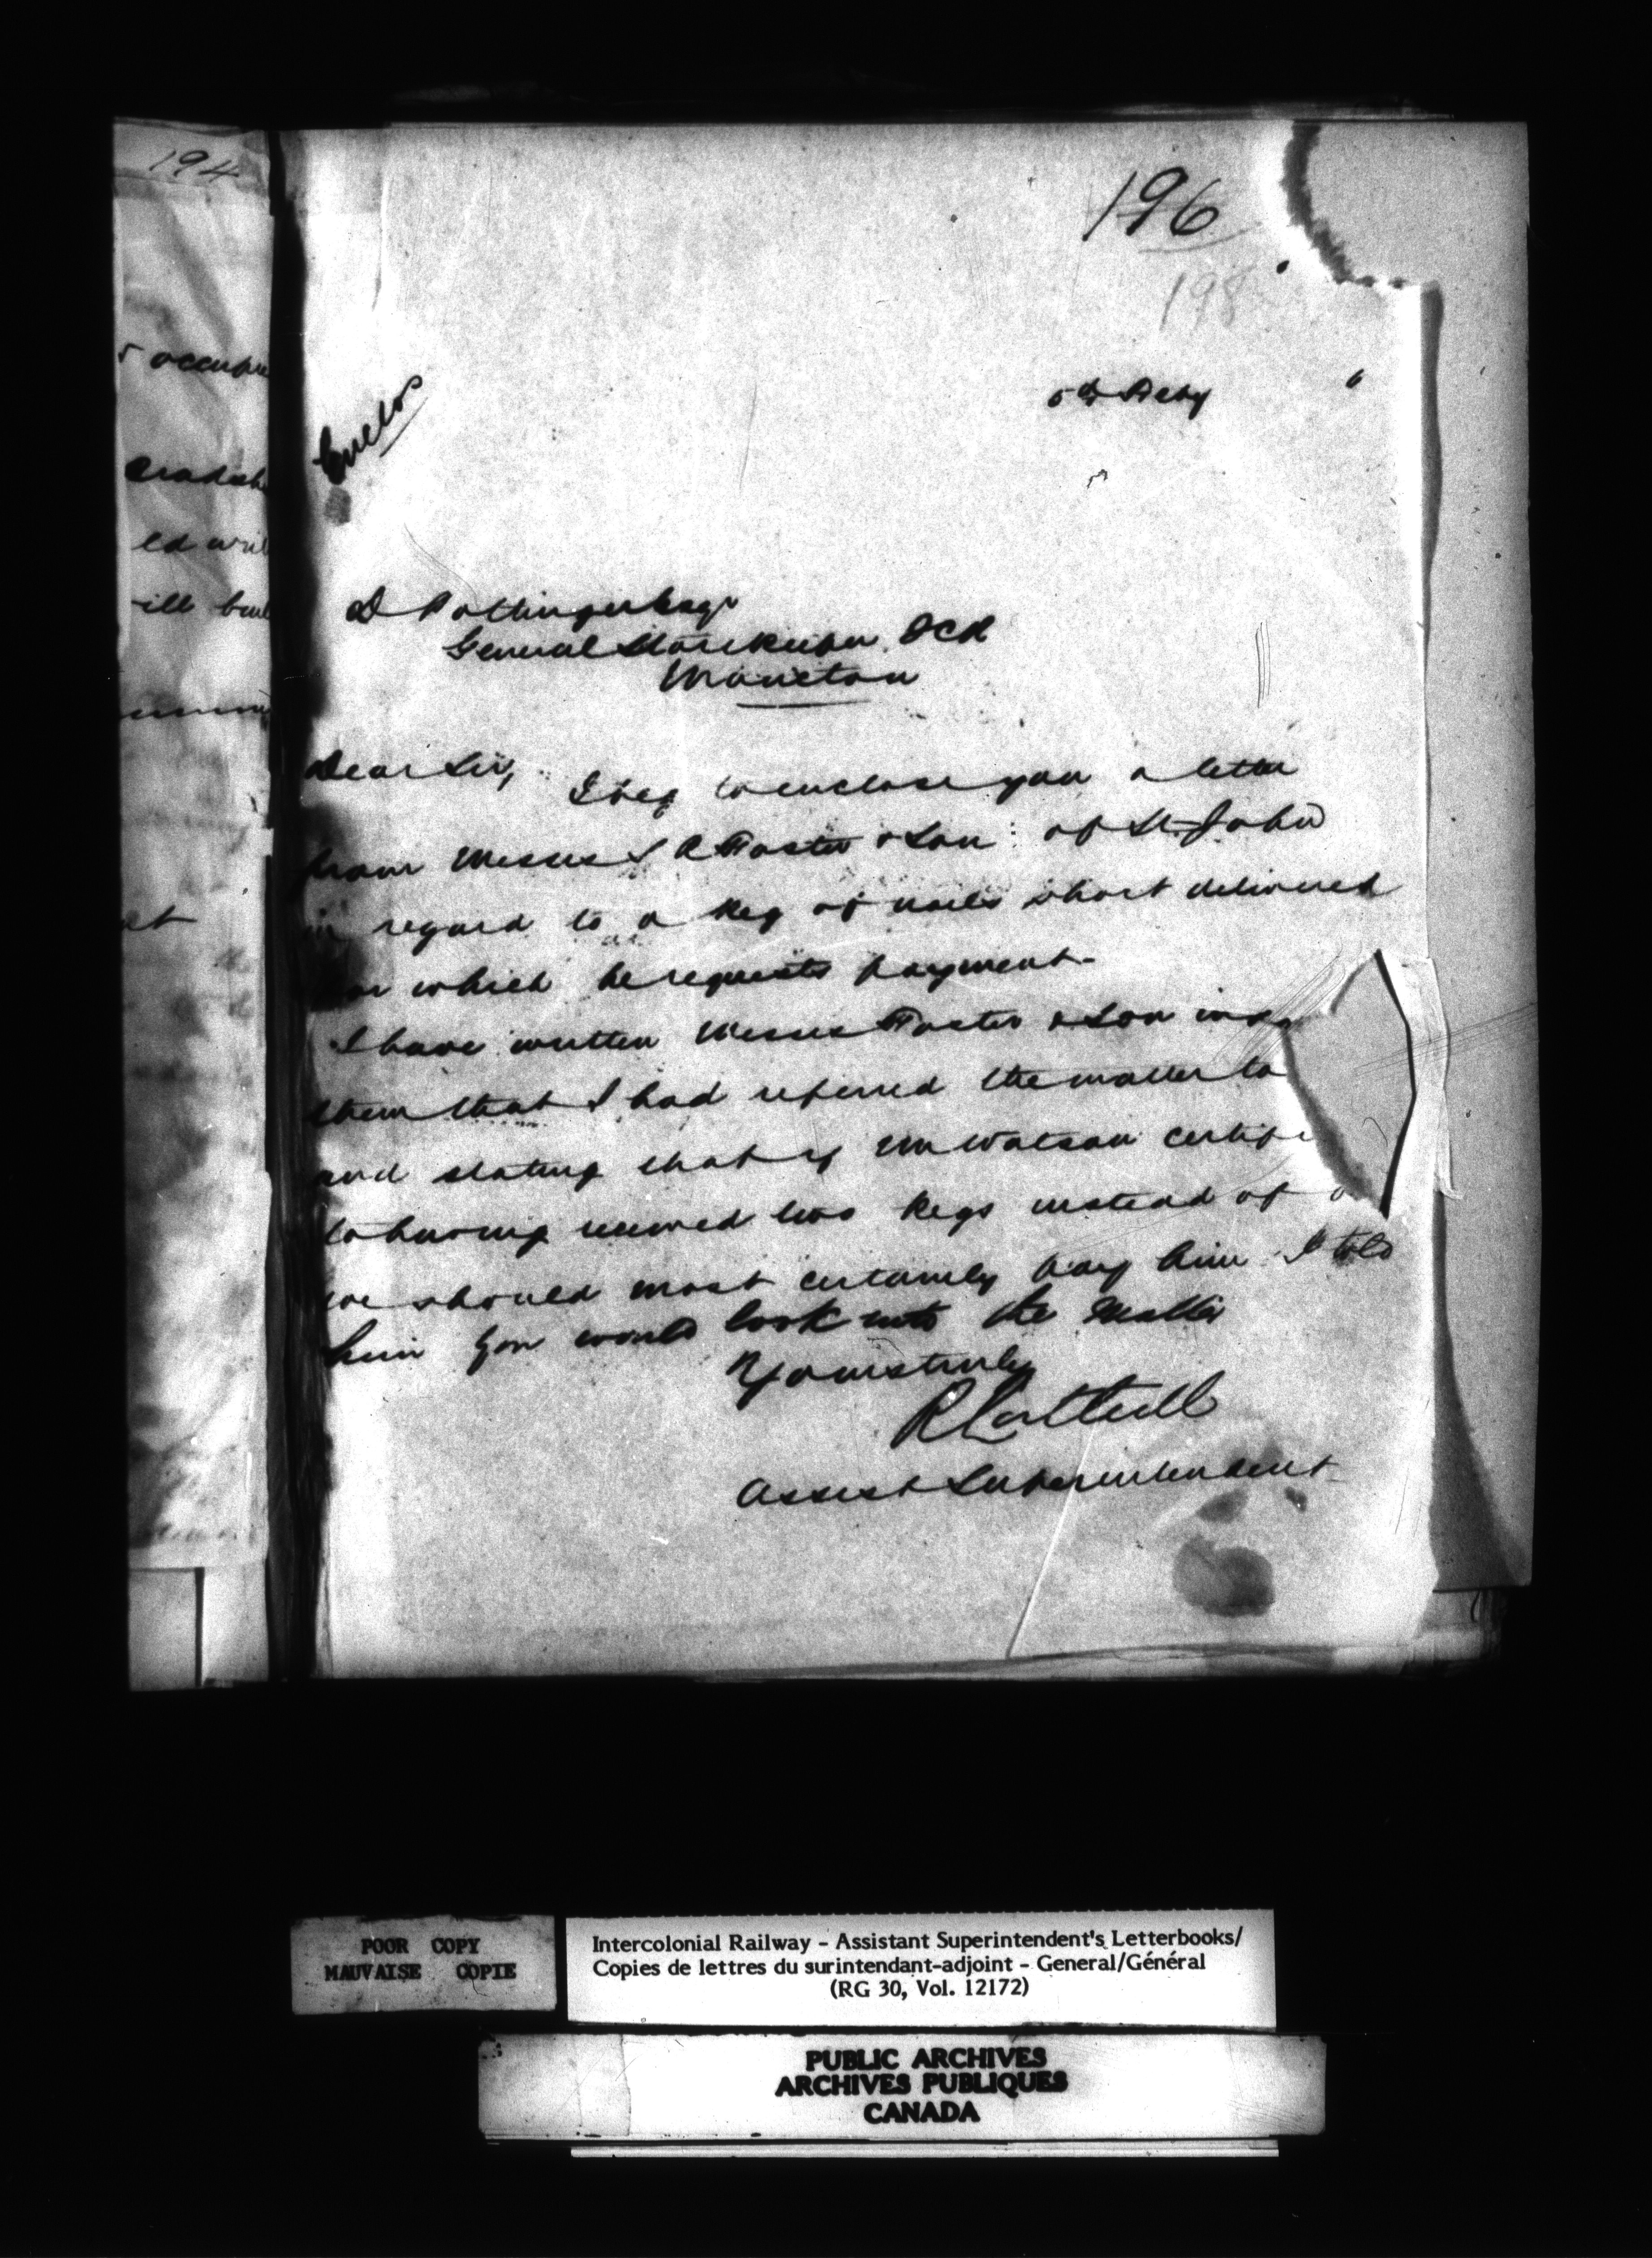 194
196
198
Enclos
D Pottinger Esqr
General Storekeeper ICR
Moncton
Dear Sir,
I beg to enclose you a letter
from Messrs S R Foster & Son of St. John
in regard to a keg of nails short delivered
for which he requests payment-
I have written Messrs Foster & Son
them that I had referred the matter to
and stating that if Mr Watson certifi
to having received two kegs instead of
we should most certainly pay him I told
him you would look into the matter
Yours truly
R Luttrell
Assist Superintendent
POOR COPY
MAUVAISE COPIE
Intercolonial Railway - Assistant Superintendent's Letterbooks/
Copies de lettres du surintendant-adjoint - General/Général
(RG 30, Vol. 12172)
PUBLIC ARCHIVES
ARCHIVES PUBLIQUES
CANADA